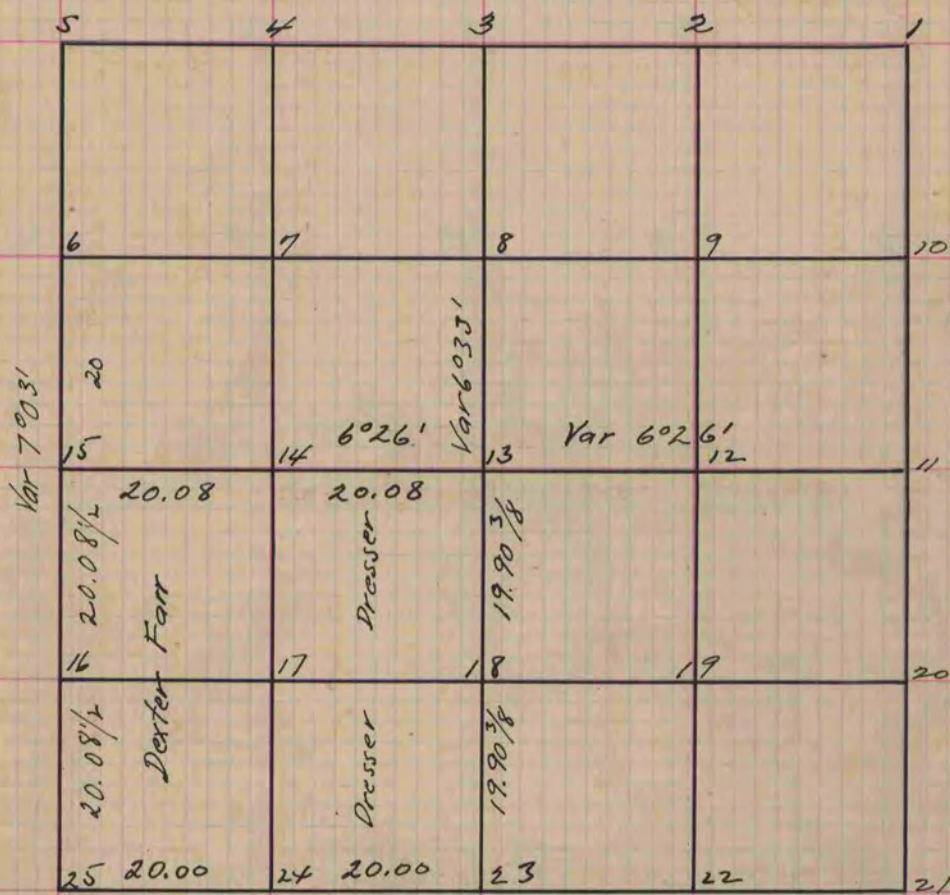 5 4 3 2 1
6 7 8 9 10
Var 7°03'
20
Var 6°33'
6°26'
Var 6°26'
15 14 13 12 11
20.08 20.08
20.08 1/2
Dexter Farr
Dresser
19.90 3/8
16 17 18 19 20
20.08 1/2
Dresser
19.90 3/8
25 20.00 24 20.00 23 22